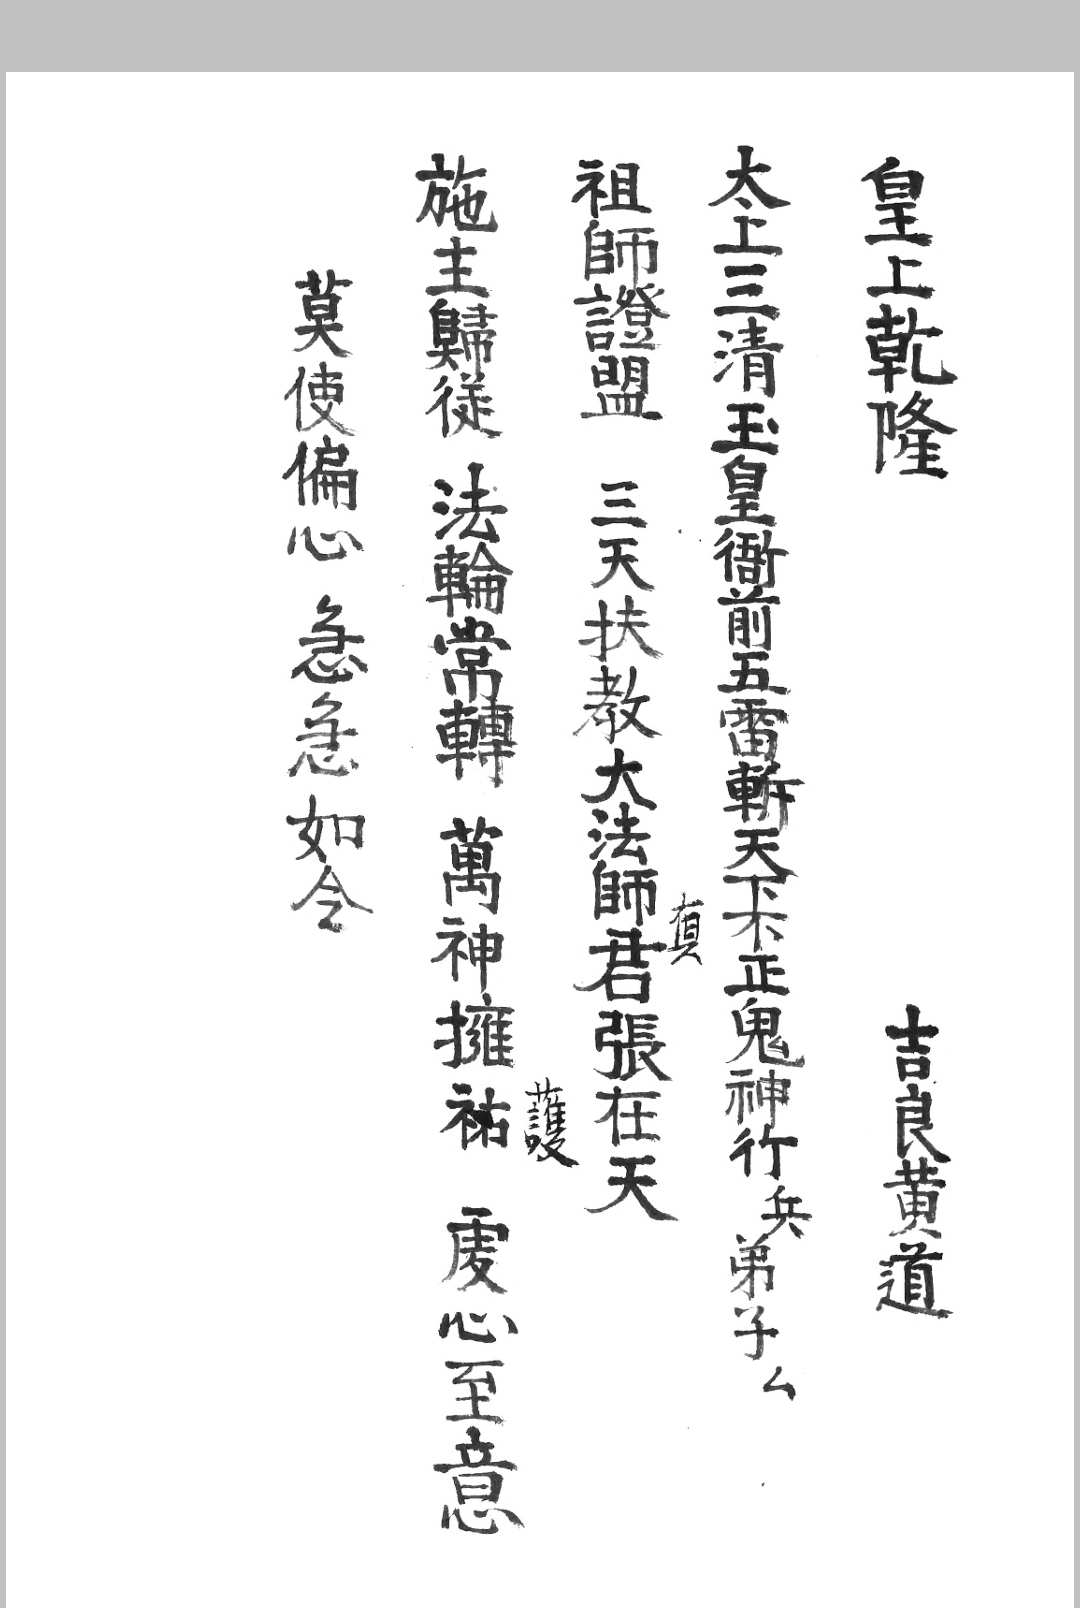 皇上乾隆　吉良黄道
太上三清玉皇衙前五雷斬天下不正鬼神行兵弟子厶
祖師證盟　三天扶教大法師真君張在天
施主歸從　法輪常轉　萬神擁護祐　虔心至意
莫使偏心　急急如令